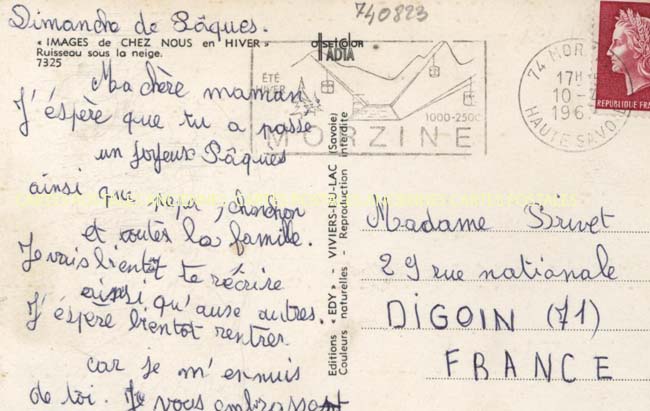 Dimanche de Pâques.
740823
« IMAGES de CHEZ NOUS en HIVER »
Ruisseau sous la neige.
7325
Ma chère maman
J'éspère que tu a passé
un joyeux Pâques
ainsi que papi, chonchon
et toutes la famille.
Je vais bientôt te réécrire
ainsi qu'ause autres.
J'éspère bientot rentrer
car je m'ennuis
de toi. Je vous embrassent
OFFSET COLOR
IADTA
ÉTÉ
HIVER
1000-2500
MORZINE
74 MOR
17H
10-
196
HAUTE SAVOIE
REPUBLIQUE FRAN
Editions « EDY » - VIVIERS-DU-LAC (Savoie)
Couleurs naturelles - Reproduction interdite
Madame Brivet
29 rue nationale
DIGOIN (71)
FRANCE